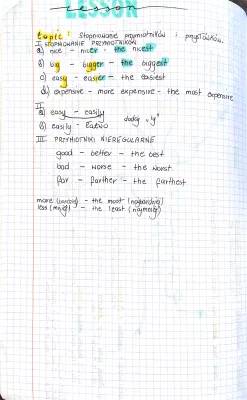 LESSON
lesson
topic: Stopniowanie przymiotników i przysłówków.
I. STOPNIOWANIE PRZYMIOTNIKÓW
a) nice - nicer - the nicest
b) big - bigger - the biggest
c) easy - easier - the easiest
d) expensive - more expensive - the most expensive
II
a) easy - easily
dodaj "y"
b) easily - łatwo
III. PRZYMIOTNIKI NIEREGULARNE
good - better - the best
bad - worse - the worst
far - farther - the farthest
more (bardziej) - the most (najbardziej)
less (mniej) - the least (najmniej)